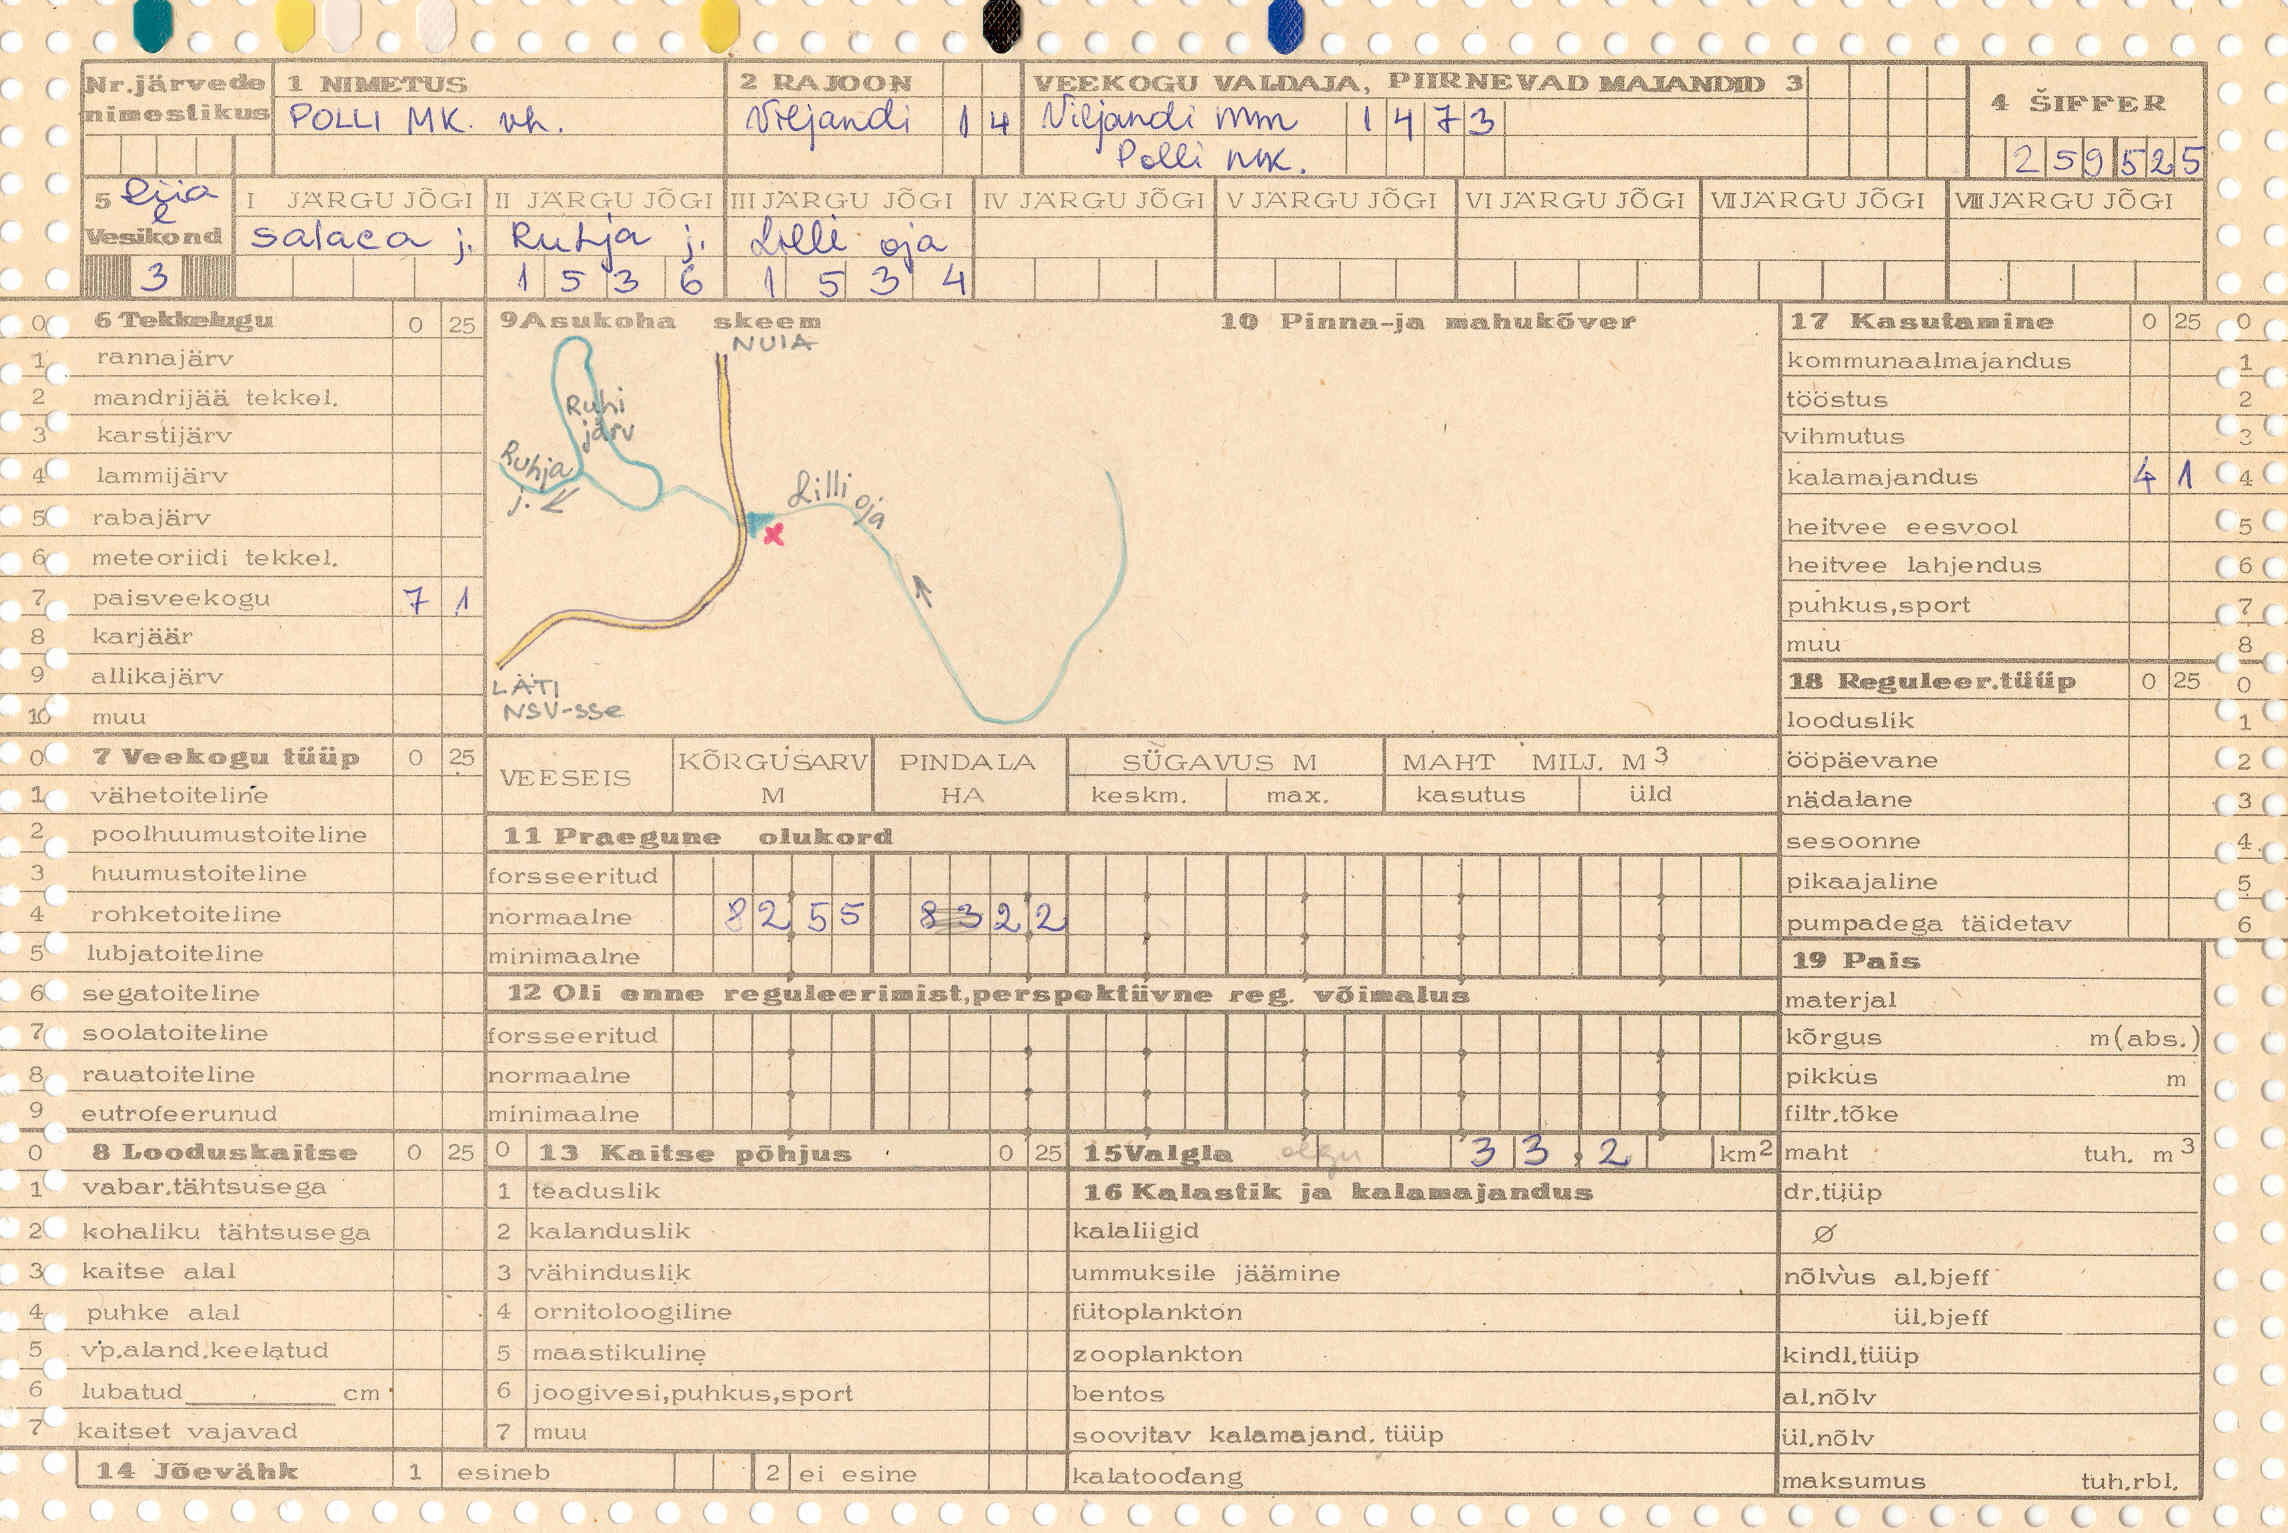 Nr.järvede nimestikus
1 NIMETUS
POLLI MK. vh.
2 RAJOON
Viljandi 14
VEEKOGU VALDAJA, PIIRNEVAD MAJANDID 3
Viljandi MM 1473
Polli MK.
4 ŠIFFER
259525
5
Vesikond
3
I JÄRGU JÕGI
Salaca j.
II JÄRGU JÕGI
Ruhja j.
1536
III JÄRGU JÕGI
Lilli oja
1534
IV JÄRGU JÕGI
V JÄRGU JÕGI
VI JÄRGU JÕGI
VII JÄRGU JÕGI
VIII JÄRGU JÕGI
0 6 Tekkelugu 0 25
1 rannajärv
2 mandrijää tekkel.
3 karstijärv
4 lammijärv
5 rabajärv
6 meteoriidi tekkel.
7 paisveekogu 7 1
8 karjäär
9 allikajärv
10 muu
0 7 Veekogu tüüp 0 25
1 vähetoiteline
2 poolhuumustoiteline
3 huumustoiteline
4 rohketoiteline
5 lubjatoiteline
6 segatoiteline
7 soolatoiteline
8 rauatoiteline
9 eutrofeerunud
0 8 Looduskaitse 0 25
1 vabar.tähtsusega
2 kohaliku tähtsusega
3 kaitse alal
4 puhke alal
5 vp.aland.keelatud
6 lubatud cm
7 kaitset vajavad
14 Jõevähk 1 esineb 2 ei esine
9 Asukoha skeem
NUIA
Ruhi järv
Ruhja j.
Lilli oja
x
LÄTI NSV-sse
10 Pinna-ja mahukõver
VEESEIS
KÕRGUSARV M
PINDALA HA
SÜGAVUS M
keskm. max.
MAHT MILJ. M3
kasutus üld
11 Praegune olukord
forsseeritud
normaalne 8255 8322
minimaalne
12 Oli enne reguleerimist,perspektiivne reg. võimalus
forsseeritud
normaalne
minimaalne
0 13 Kaitse põhjus 0 25
1 teaduslik
2 kalanduslik
3 vähinduslik
4 ornitoloogiline
5 maastikuline
6 joogivesi,puhkus,sport
7 muu
15 Valgla 33.2 km2
16 Kalastik ja kalamajandus
kalaliigid
ummuksile jäämine
fütoplankton
zooplankton
bentos
soovitav kalamajand. tüüp
kalatoodang
17 Kasutamine 0 25 0
kommunaalmajandus 1
tööstus 2
vihmutus 3
kalamajandus 4 1 4
heitvee eesvool 5
heitvee lahjendus 6
puhkus,sport 7
muu 8
18 Reguleer.tüüp 0 25 0
looduslik 1
ööpäevane 2
nädalane 3
sesoonne 4
pikaajaline 5
pumpadega täidetav 6
19 Pais
materjal
kõrgus m(abs.)
pikkus m
filtr.tõke
maht tuh. m3
dr.tüüp
Ø
nõlvus al.bjeff
ül.bjeff
kindl.tüüp
al.nõlv
ül.nõlv
maksumus tuh.rbl.